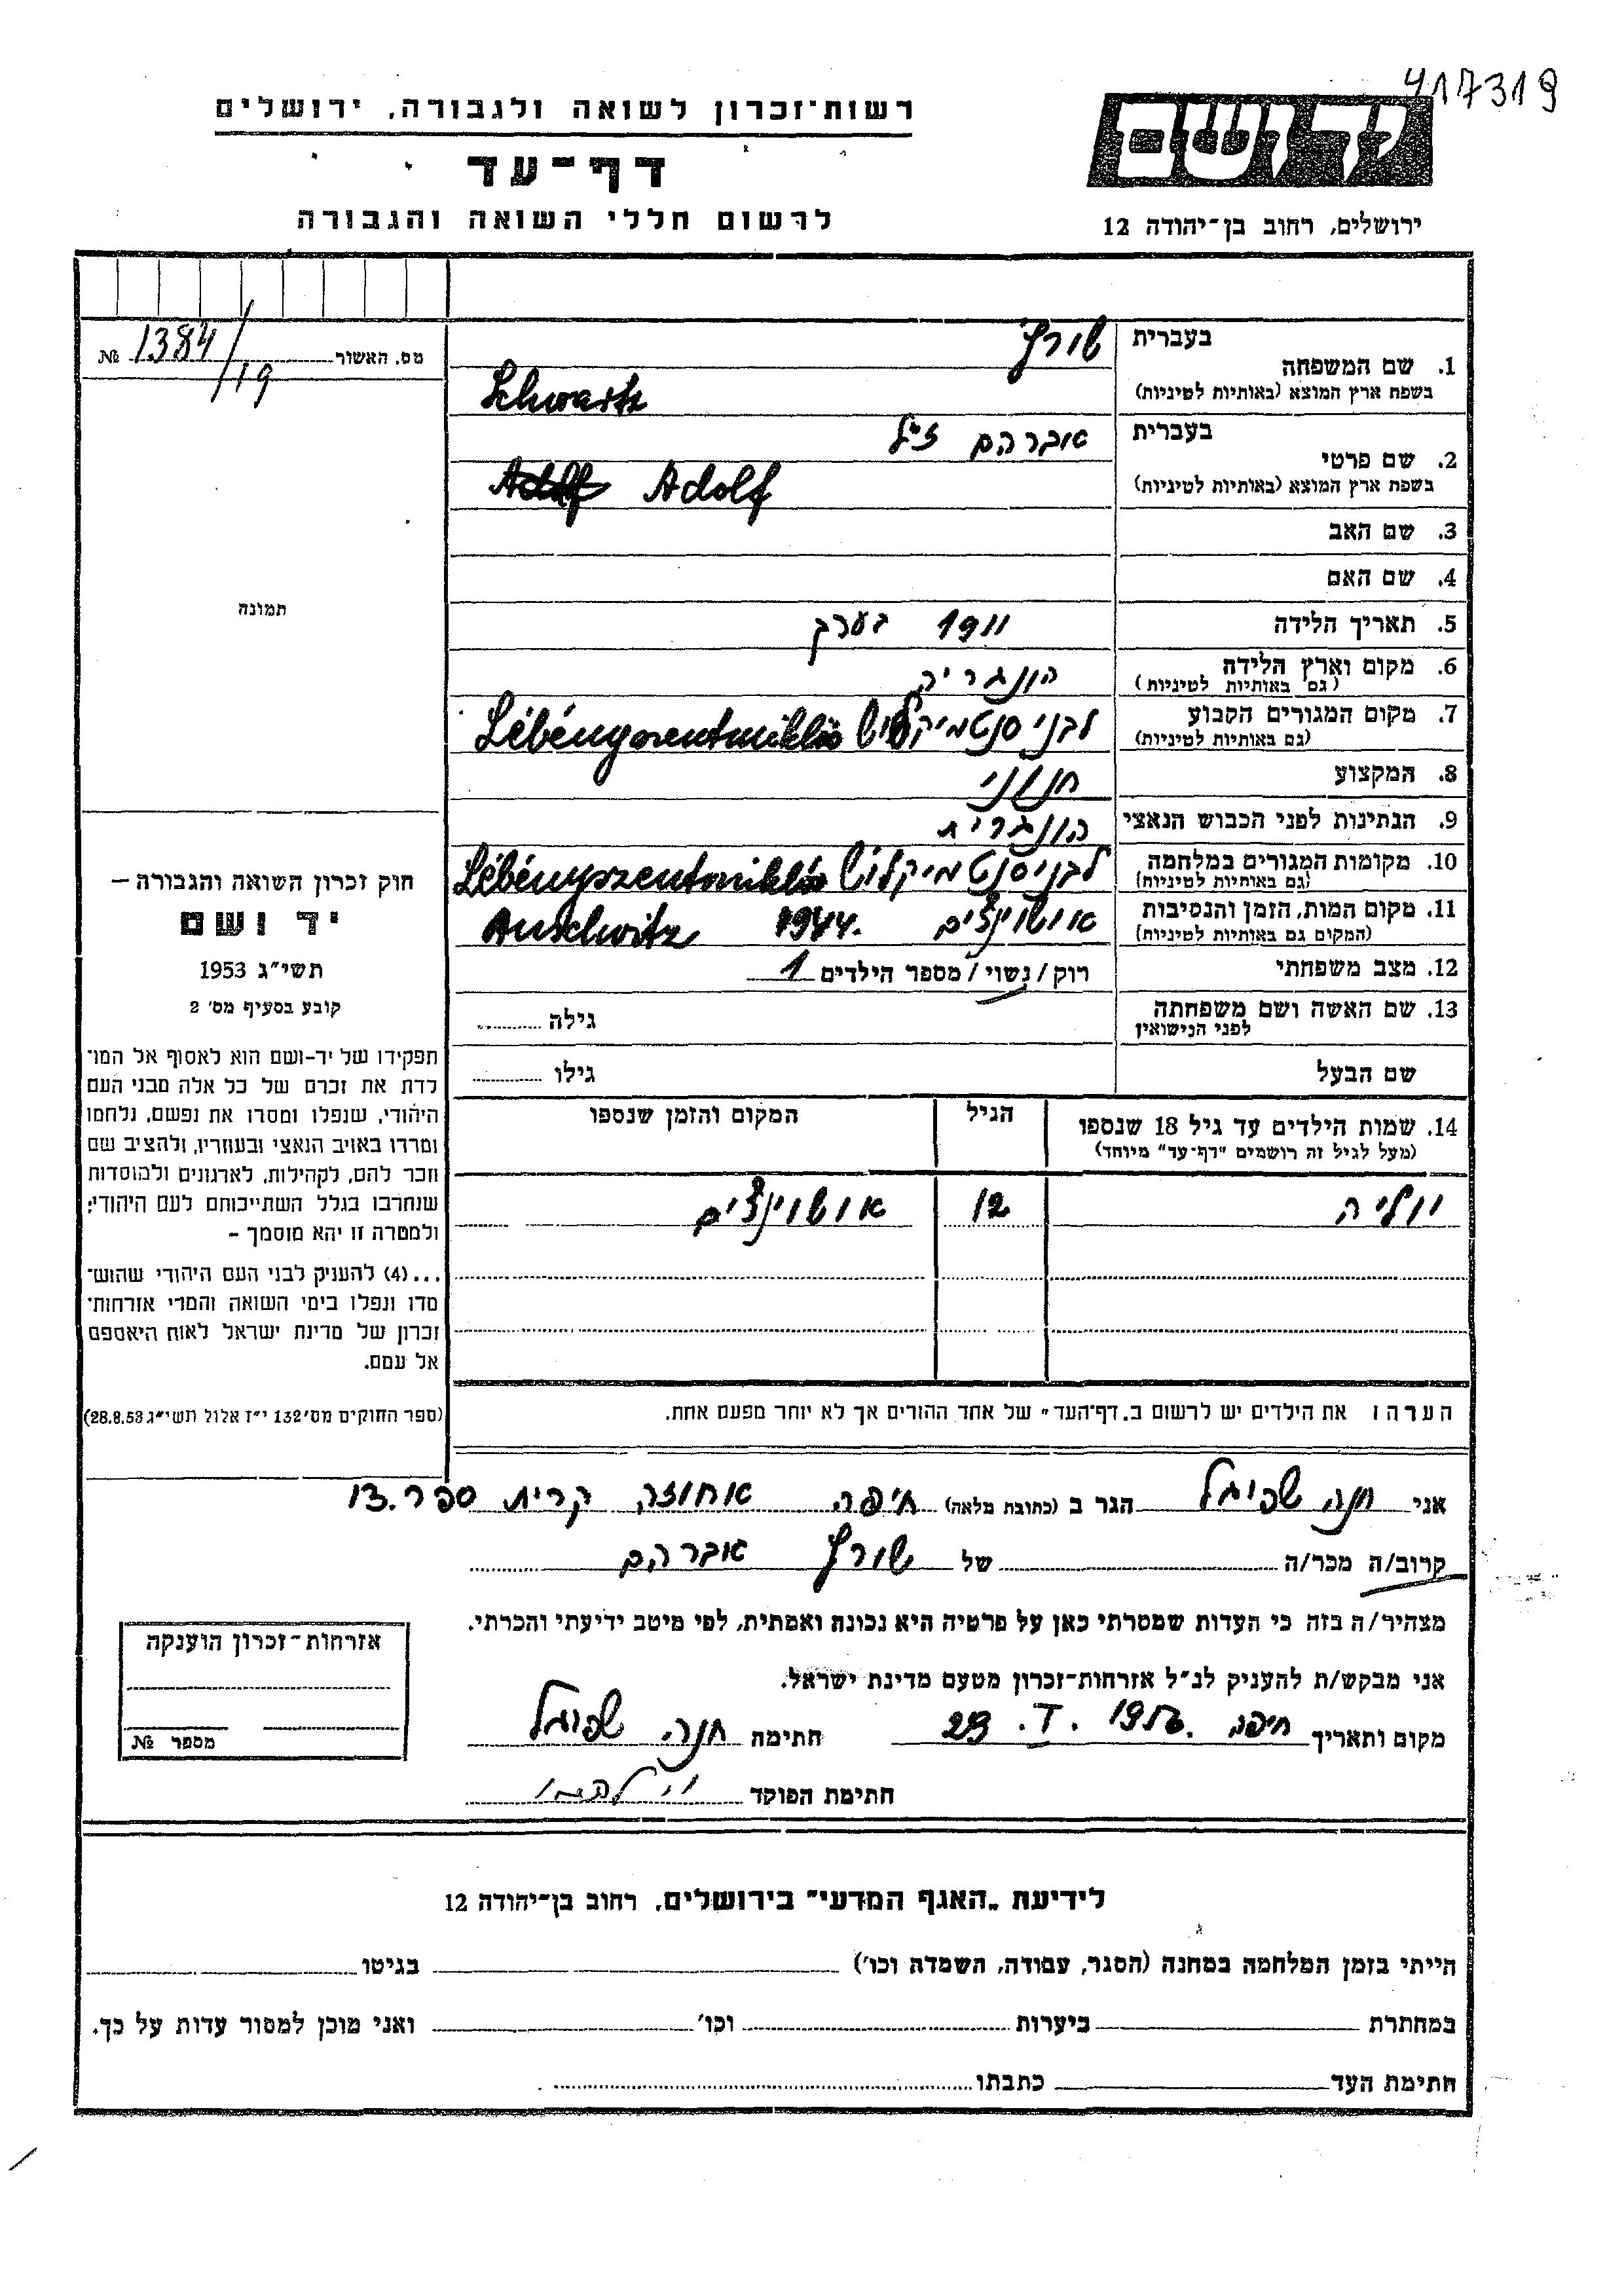 417319
רשות־זכרון לשואה ולגבורה, ירושלים
דף־עד
לרשום חללי השואה והגבורה
ידושם
ירושלים, רחוב בן־יהודה 12
מס. האשור 1384/19 №
תמונה
חוק זכרון השואה והגבורה —
יד ושם
תשי״ג 1953
קובע בסעיף מס׳ 2
תפקידו של יד-ושם הוא לאסוף אל המו־
לדת את זכרם של כל אלה מבני העם
היהודי, שנפלו ומסרו את נפשם, נלחמו
ומרדו באויב הנאצי ובעוזריו, ולהציב שם
וזכר להם, לקהילות, לארגונים ולמוסדות
שנחרבו בגלל השתייכותם לעם היהודי;
ולמטרה זו יהא מוסמך –
...(4) להעניק לבני העם היהודי שהוש־
מדו ונפלו בימי השואה והמרי אזרחות־
זכרון של מדינת ישראל לאות היאספם
אל עמם.
(ספר החוקים מס׳ 132 י״ז אלול תשי״ג 28.8.53)
1. שם המשפחה
בעברית שורץ
בשפת ארץ המוצא (באותיות לטיניות) Schwartz
2. שם פרטי
בעברית אברהם ז״ל
בשפת ארץ המוצא (באותיות לטיניות) Adolf Adolf
3. שם האב
4. שם האם
5. תאריך הלידה 1911 בערך
6. מקום וארץ הלידה הונגריה
(גם באותיות לטיניות)
7. מקום המגורים הקבוע לבני סנטמיקלוש Lébényszentmiklós
(גם באותיות לטיניות)
8. המקצוע חנוני
9. הנתינות לפני הכבוש הנאצי הונגרית
10. מקומות המגורים במלחמה לבניסנטמיקלוש Lébényszentmiklós
(גם באותיות לטיניות)
11. מקום המות, הזמן והנסיבות אושויצים 1944. Auschwitz
(המקום גם באותיות לטיניות)
12. מצב משפחתי רוק / נשוי / מספר הילדים 1
13. שם האשה ושם משפחתה גילה
לפני הנישואין
שם הבעל גילו
14. שמות הילדים עד גיל 18 שנספו הגיל המקום והזמן שנספו
(מעל לגיל זה רושמים "דף־עד" מיוחד)
יוליה 12 אושויצים
הערה: את הילדים יש לרשום ב„דף־העד" של אחד ההורים אך לא יותר מפעם אחת.
אני חנה שפיגל הגר ב (כתובת מלאה) חיפה אחוזה קרית ספר 13.
קרוב/ה מכר/ה של שורץ אברהם
מצהיר/ה בזה כי העדות שמסרתי כאן על פרטיה היא נכונה ואמתית, לפי מיטב ידיעתי והכרתי.
אני מבקש/ת להעניק לנ״ל אזרחות־זכרון מטעם מדינת ישראל.
מקום ותאריך חיפה 1956. I. 29 חתימה חנה שפיגל
חתימת הפוקד
אזרחות־זכרון הוענקה
מספר №
לידיעת „האגף המדעי" בירושלים, רחוב בן־יהודה 12
הייתי בזמן המלחמה במחנה (הסגר, עבודה, השמדה וכו׳) בגיטו
במחתרת ביערות וכו׳ ואני מוכן למסור עדות על כך.
חתימת העד כתבתו